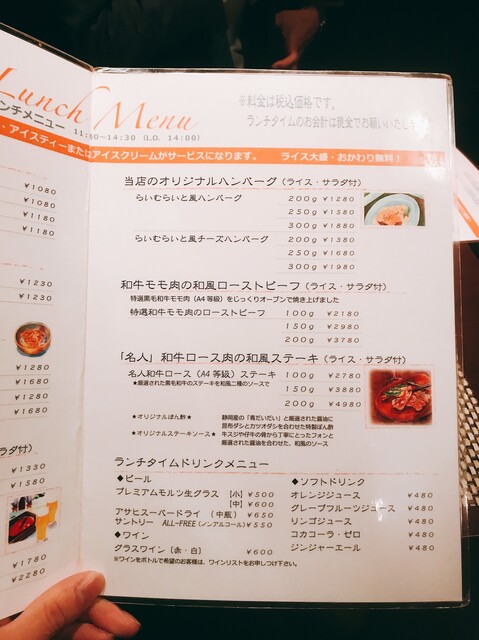 Lunch Menu
ンチメニュー 11:00〜14:30 (L.O. 14:00)
※料金は税込価格です。
ランチタイムのお会計は現金でお願いいたします
・アイスティーまたはアイスクリームがサービスになります。 ライス大盛・おかわり無料！
¥1080
¥1080
¥1180
¥1180
¥1230
¥1230
¥1280
¥1680
¥1280
¥1680
ラダ付）
¥1330
¥1580
¥1780
¥2280
当店のオリジナルハンバーグ（ライス・サラダ付）
らいむらいと風ハンバーグ 200g ¥1280
250g ¥1580
300g ¥1880
らいむらいと風チーズハンバーグ 200g ¥1380
250g ¥1680
300g ¥1980
和牛モモ肉の和風ローストビーフ（ライス・サラダ付）
特選黒毛和牛モモ肉（A4等級）をじっくりオーブンで焼き上げました
特選和牛モモ肉のローストビーフ 100g ¥2180
150g ¥2980
200g ¥3780
「名人」和牛ロース肉の和風ステーキ（ライス・サラダ付）
名人和牛ロース（A4等級）ステーキ 100g ¥2780
★厳選された黒毛和牛のステーキを和風二種のソースで 150g ¥3880
200g ¥4980
★オリジナルぽん酢★ 静岡産の「青だいだい」と厳選された醤油に
昆布ダシとカツオダシを合わせた特製ぽん酢
★オリジナルステーキソース★ 牛スジや仔牛の骨から丁寧にとったフォンと
厳選された醤油を合わせた、和風のソース
ランチタイムドリンクメニュー
◆ビール
プレミアムモルツ生グラス [小] ¥500
[中] ¥600
アサヒスーパードライ （中瓶） ¥650
サントリー ALL-FREE（ノンアルコール）¥550
◆ワイン
グラスワイン〔赤・白〕 ¥600
※ワインをボトルで希望のお客様は、ワインリストをお申しつけ下さい。
◆ソフトドリンク
オレンジジュース ¥480
グレープフルーツジュース ¥480
リンゴジュース ¥480
コカコーラ・ゼロ ¥480
ジンジャーエール ¥480